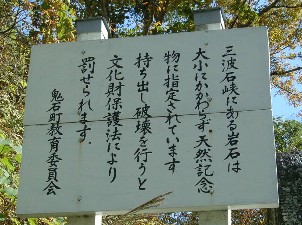 三波石峡にある岩石は
大小にかかわらず天然記念
物に指定されています
持ち出し破壊を行うと
文化財保護法により
罰せられます.
鬼石町教育委員会